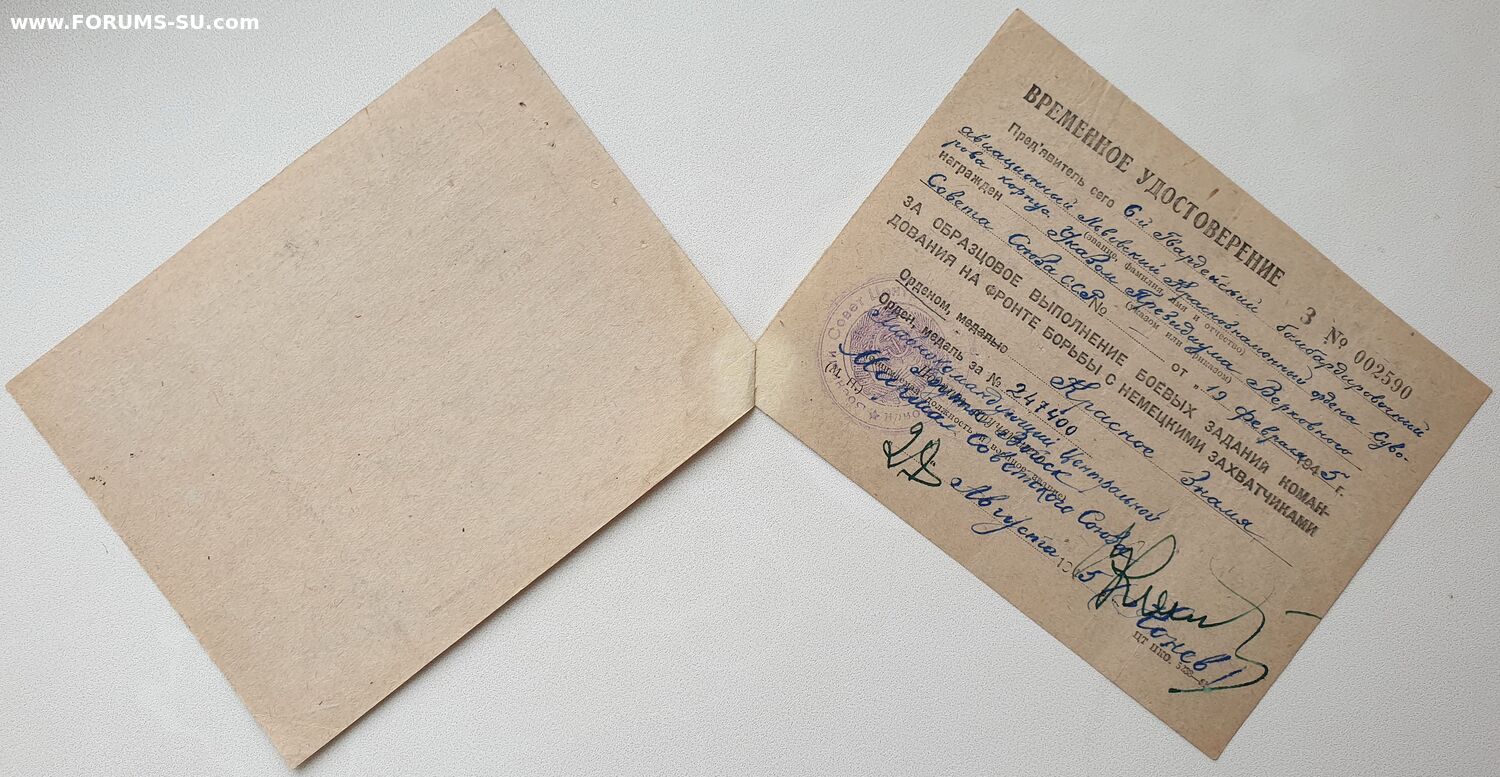 www.FORUMS-SU.com
ВРЕМЕННОЕ УДОСТОВЕРЕНИЕ
З № 002590
Пред'явитель сего 6-й Гвардейский бомбардировочный
авиационный Львовский Краснознаменный ордена Суво-
(звание, фамилия, имя и отчество)
рова корпус
награжден Указом Президиума Верховного
(указом или приказом)
Совета Союза ССР № — от „19 февраля 1945 г.
ЗА ОБРАЗЦОВОЕ ВЫПОЛНЕНИЕ БОЕВЫХ ЗАДАНИЙ КОМАН-
ДОВАНИЯ НА ФРОНТЕ БОРЬБЫ С НЕМЕЦКИМИ ЗАХВАТЧИКАМИ
Орденом, медалью Красное Знамя
Орден, медаль за № 247400
Главнокомандующий Центральной
Группой Войск
Маршал Советского Союза
(М. П.)
28 Августа 1945
Конев